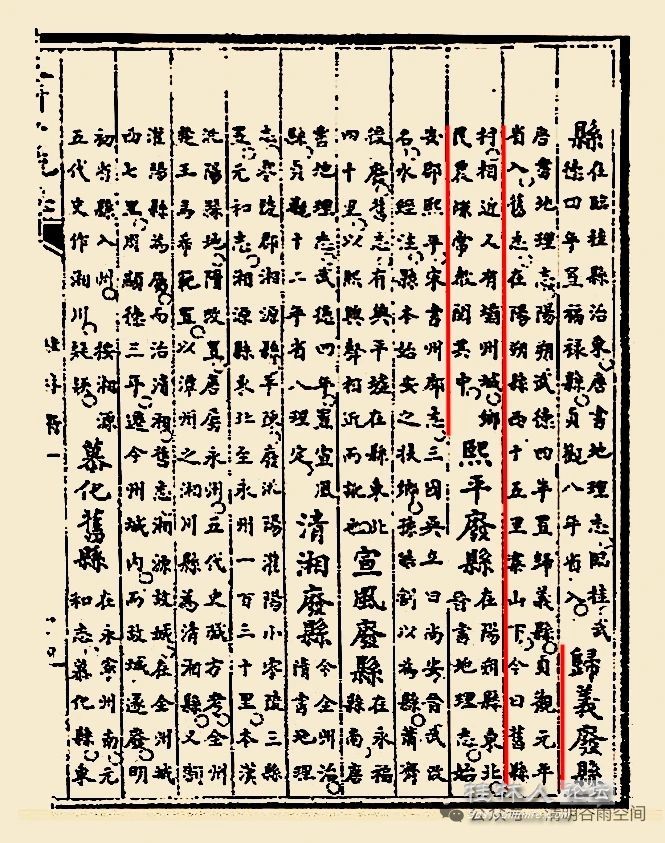 縣
在臨桂縣治東唐書地理志臨桂武
德四年置福祿縣貞觀八年省入
歸義廢縣
唐書地理志陽朔武德四年置歸義縣貞觀元年
省入舊志在陽朔縣西十五里寨山下今曰舊縣
村相近又有蒲州城鄉
民農隙常敎閱其中
熙平廢縣
在陽朔縣東北
晉書地理志始
安郡熙平宋書州郡志三國吳立曰尚安晉武改
名水經注縣本始安之扶鄉孫皓割以爲縣蕭齊
後廢舊志有興平墟在縣東北
四十里以熙興聲相近而訛也
宣風廢縣
在永福
縣南唐
書地理志武德四年置宣風
縣貞觀十二年省入理定
清湘廢縣
今全州治
隋書地理
志零陵郡湘源縣平陳廢洮陽灌陽小零陵三縣
置元和志湘源縣東北至永州一百三十里本漢
洮陽縣地隋改置唐屬永州五代史職方考全州
楚王馬希範置以潭州之湘川縣爲清湘縣又領
灌陽縣爲屬而治清湘舊志湘源故城在全州城
西七里周顯德三年遷今州城內而故城遂廢明
初省縣入州按湘源
五代史作湘川疑誤
慕化舊縣
在永寧州南元
和志慕化縣東
桂林人论坛
公众号 · 清明谷雨空间